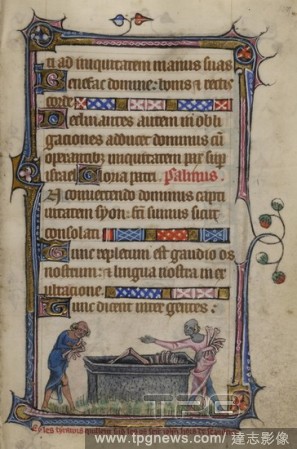 ti ad iniquitatem manus suas
Benefac domine: bonis et rectis
corde
Declinantes autem in obli
gaciones adducet dominus cum
operantibz iniquitatem pax sup
israel Gloria patri. Psalmus.
In convertendo dominus capti
vitatem syon: sumus sicut
consolati
Tunc repletum est gaudio os
nostrum: et lingua nostra in ex
ultacione.
Tunc dicent inter gentes.
TPG
www.tpgnews.com/達志影像